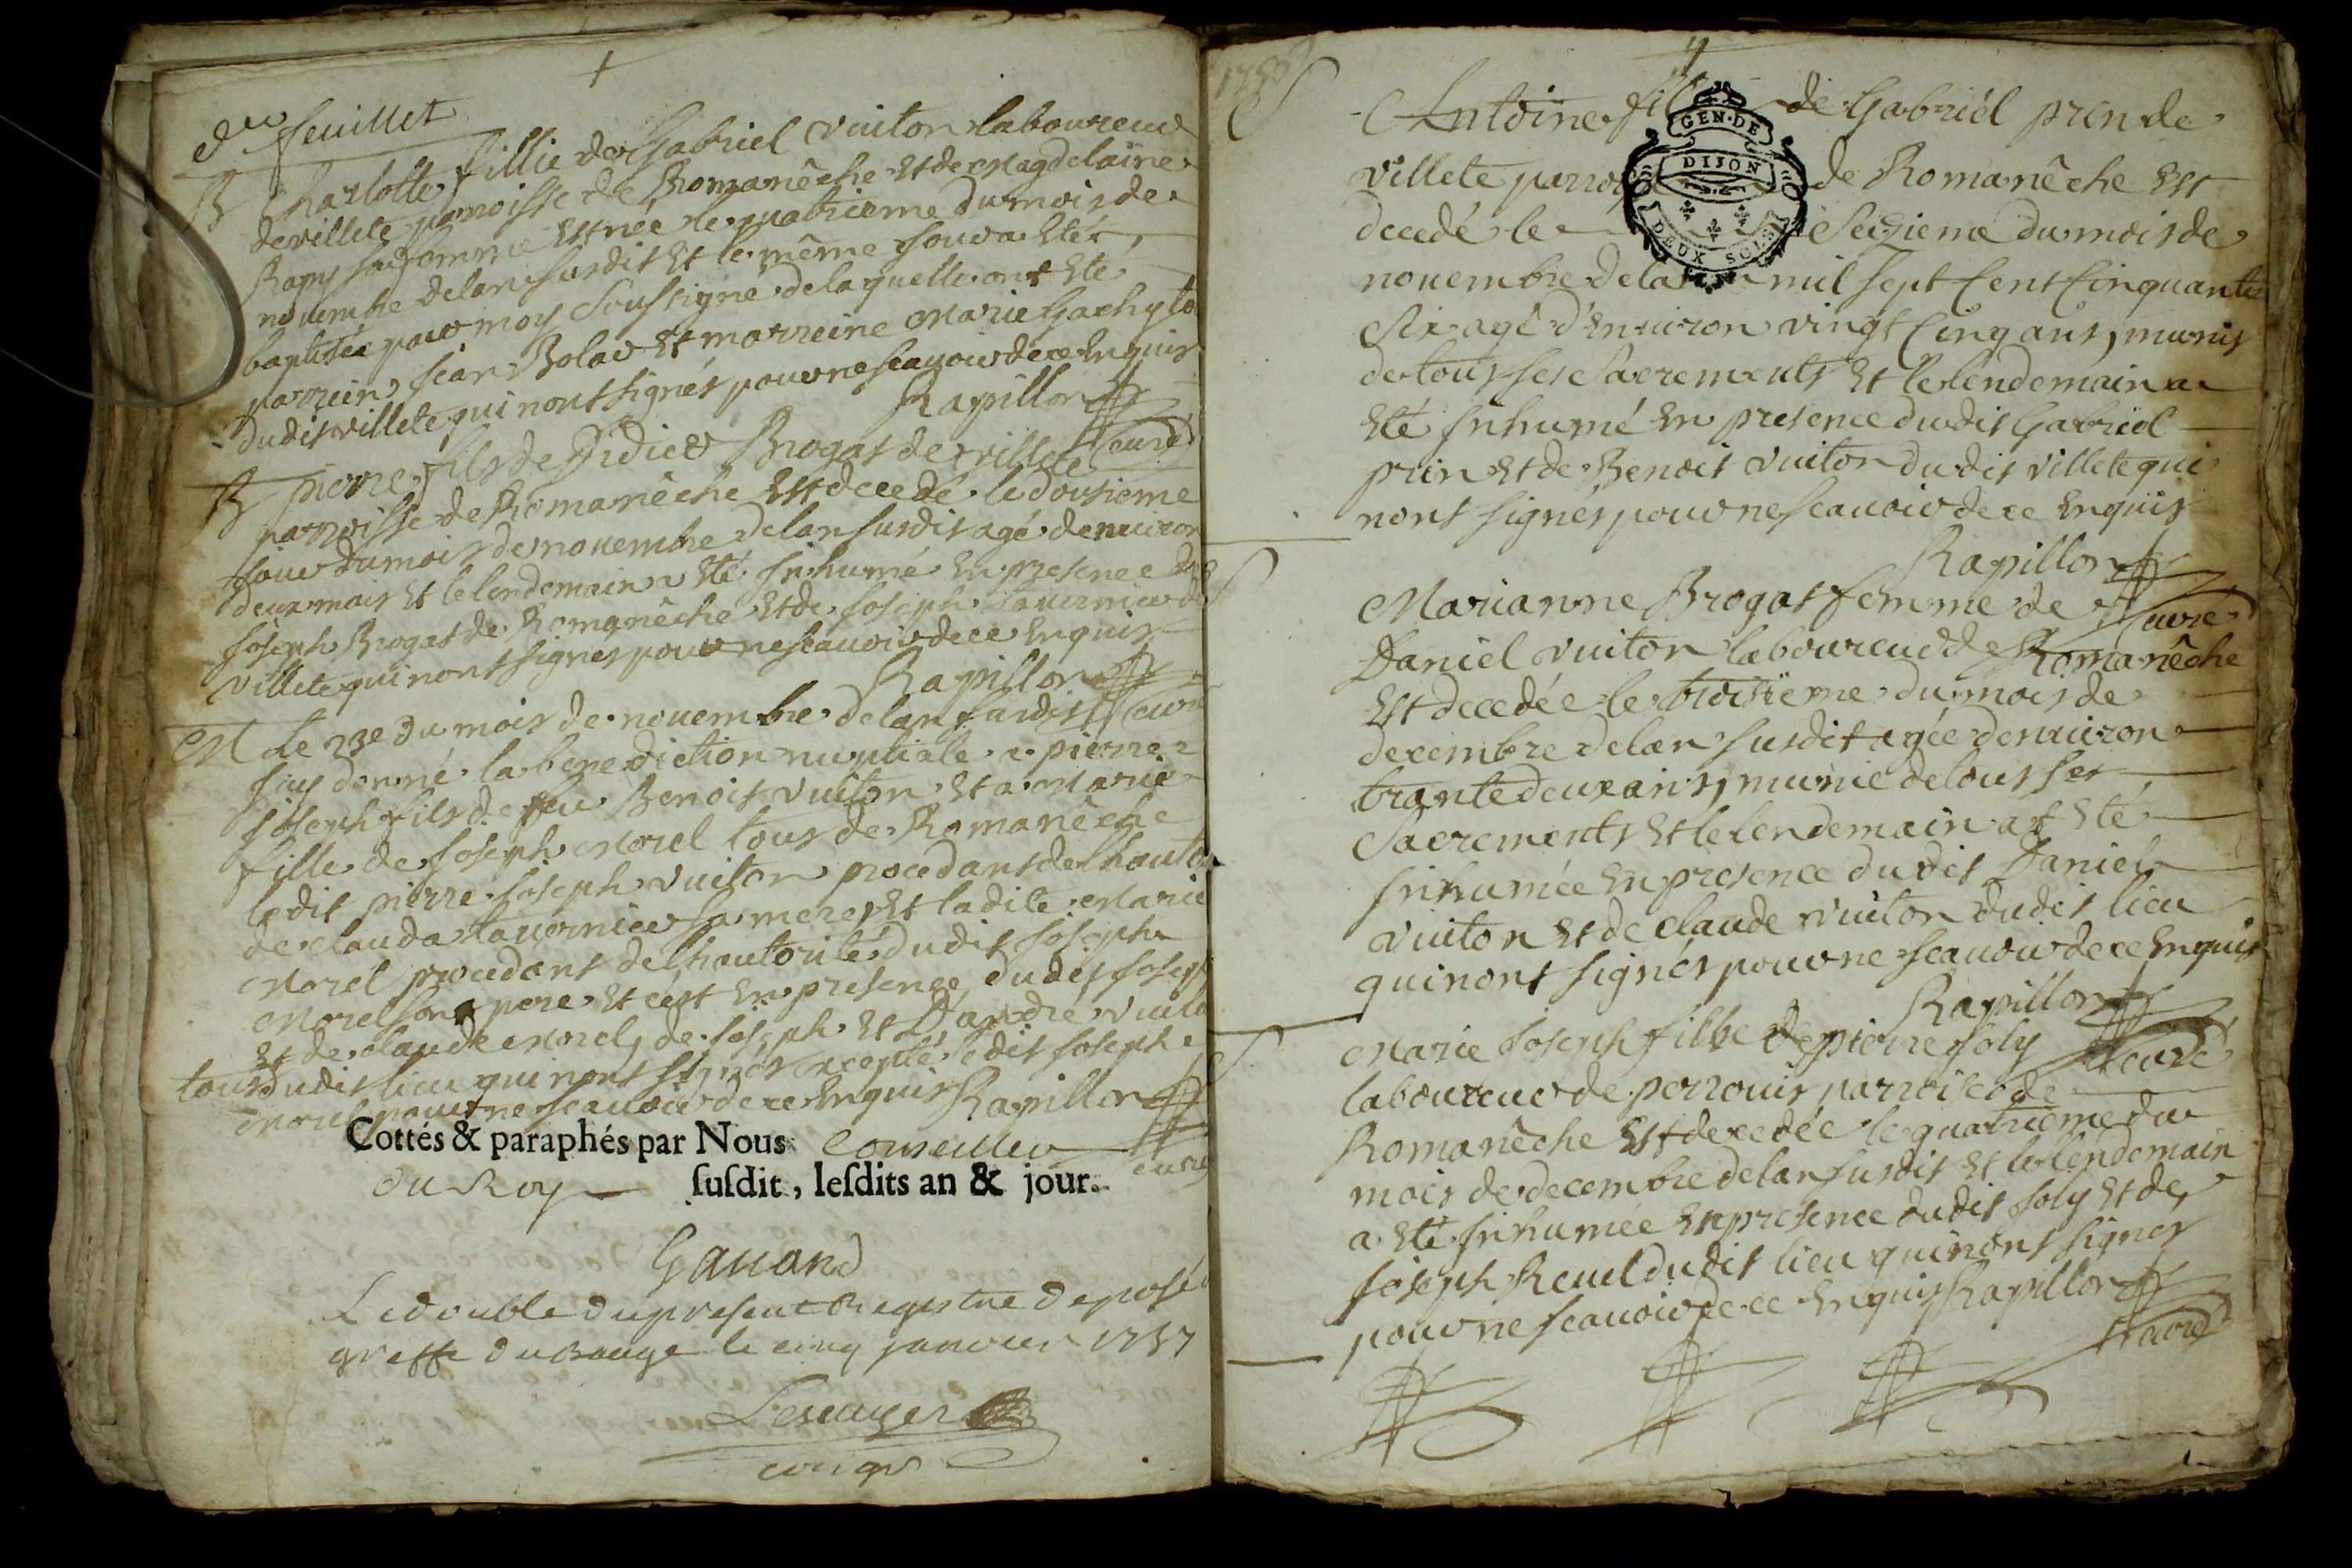 feuillet
B Charlotte fillie de Gabriel vuiton laboureur
de villete parroisse de Romanêche Et de Magdelaine
sa femme Est née le quatrieme du mois de
novembre de lan susdit Et le même jour a Eté
baptisée par moy soussigné de laquelle ont Eté
parrein jean Bolad Et marreine Marie
dudit villete qui nont signés pour ne scavoir de ce Enquis
Rapillon
curé
B pierre fils de Brogat de villete
parroisse de Romanêche Est decedé le dousieme
jour du mois de novembre de lan susdit agé denviron
deux mois Et le lendemain a Eté jnhumé En presence de
joseph Brogat de Romanêche Et de joseph tavernier de
villete qui nont signes pour ne scavoir de ce Enquis
Rapillon
curé
M Le 23e du mois de novembre de lan susdit
jay donné la benediction nuptiale a pierre
joseph fils de feu Benoit vuiton Et a Marie
fille de joseph Morel tous de Romanêche
ledit pierre joseph vuiton procedant de lhauto
de clauda tavernier sa mere, Et ladite Marie
Morel procedant de lhautorité dudit joseph
Morel son pere Et cest En presence dudit joseph
Et de claude Morel, de joseph Et Dandré vuito
tous dudit lieu qui nont signer excepté ledit joseph
Morel pour ne scavoir de ce Enquis Rapillon
curé
Cottés & paraphés par Nous Conseiller
du Roy ſuſdit, leſdits an & jour.
Gauard
Le double du present Registre deposé
greffe du Bauge le cinq janvier 1757
1756
4
Antoine fils de Gabriel prin de
villete parrois de Romanêche Est
decedé le Seizieme du mois de
novembre de lan mil sept Cent Cinquante
Six agé d'Environ vingt Cinq ans, munis
de tous ses Sacrements Et le lendemain a
Eté jnhumé En presence dudit Gabriel
prin Et de Benoit vuiton dudit villete qui
nont signés pour ne scavoir de ce Enquis
Rapillon
curé
GEN·DE
DIJON
DEUX SOLS
Marianne Brogat femme de
Daniel vuiton laboureur de Romanêche
Est decedée le troisïeme du mois de
decembre de lan susdit agée denviron
trante deux ans, munie de tous ses
Sacrements Et le lendemain at Eté
jnhumée En presence dudit Daniel
vuiton Et de claude vuiton dudit lieu
qui nont signés pour ne scavoir de ce Enquis
Rapillon
curé
Marie joseph fillie de pierre joly
laboureur de perrouis parroise de
Romanêche Est decedée le quatrieme du
mois de decembre de lan susdit Et le lendemain
a Eté jnhumée En presence dudit joly Et de
joseph Revel dudit lieu qui nont signes
pour ne scavoir de ce Enquis Rapillon
curé